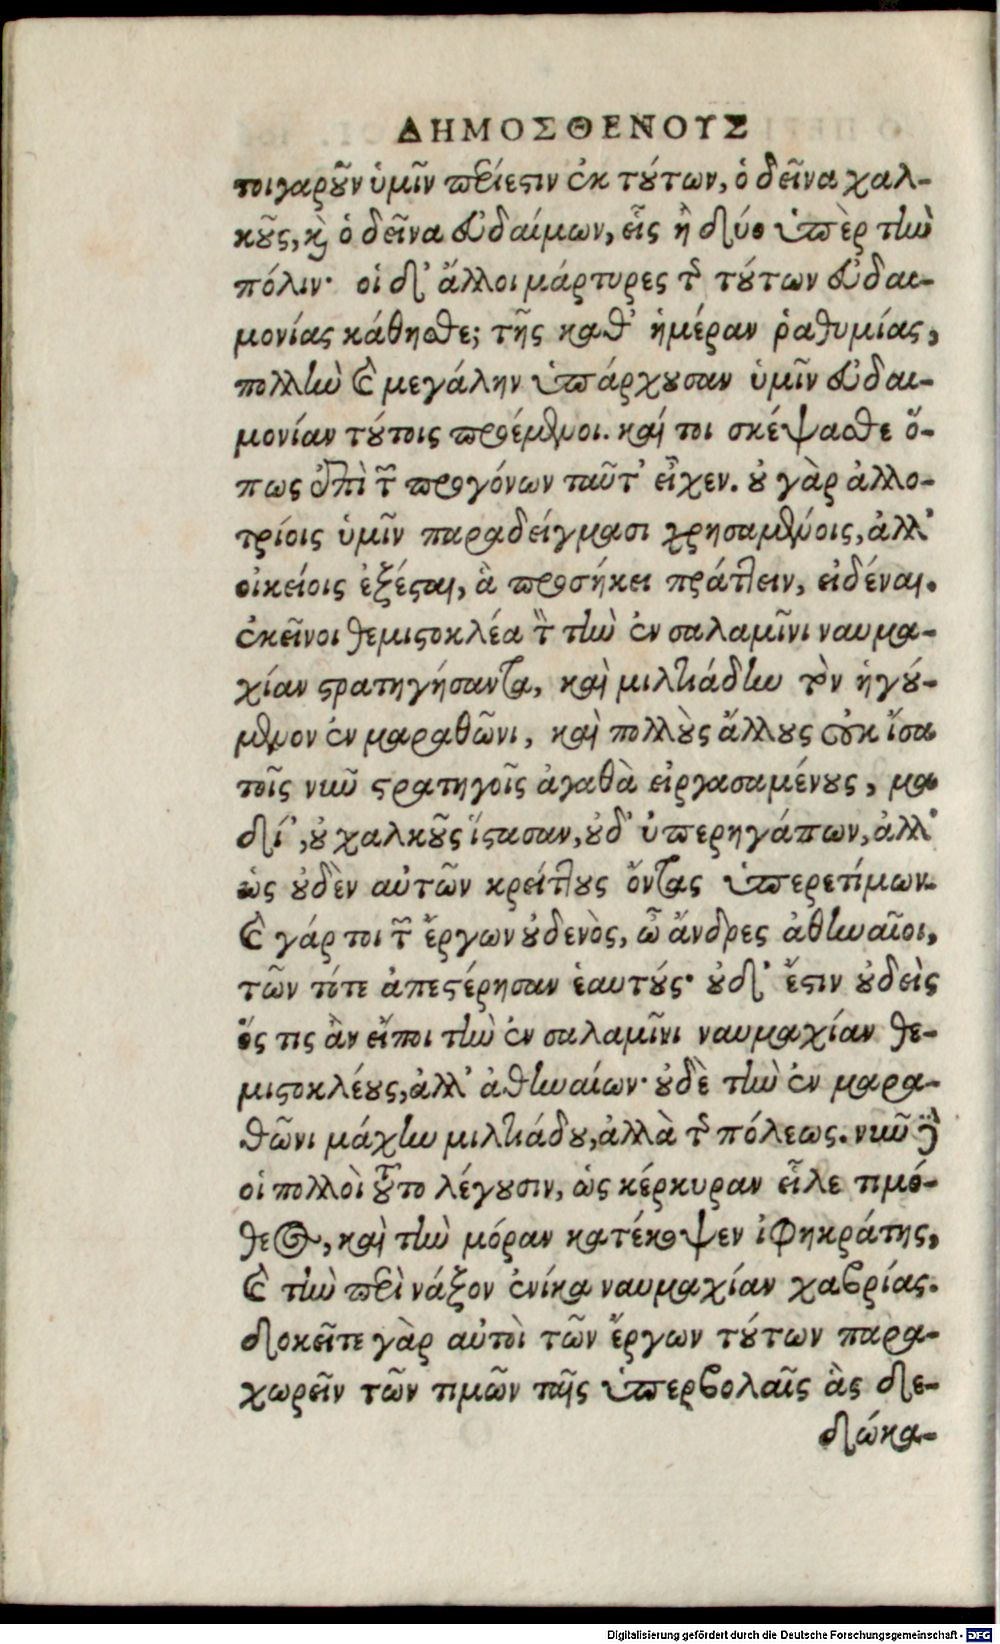 ΔΗΜΟΣΘΕΝΟΥΣ
τοιγαροῦν ὑμῖν περίεστιν ἐκ τούτων, ὁ δεῖνα χαλ-
κοῦς, καὶ ὁ δεῖνα εὐδαίμων, εἷς ἢ δύο ὑπὲρ τὴν
πόλιν· οἱ δ' ἄλλοι μάρτυρες τῆς τούτων εὐδαι-
μονίας κάθησθε; τῆς καθ' ἡμέραν ῥαθυμίας,
πολλὴν καὶ μεγάλην ὑπάρχουσαν ὑμῖν εὐδαι-
μονίαν τούτοις προέμενοι. καί τοι σκέψασθε ὅ-
πως ἐπὶ τῶν προγόνων ταῦτ' εἶχεν. οὐ γὰρ ἀλλο-
τρίοις ὑμῖν παραδείγμασι χρησαμένοις, ἀλλ'
οἰκείοις ἐξέσται, ἃ προσήκει πράττειν, εἰδέναι.
ἐκεῖνοι θεμιστοκλέα τὸν τὴν ἐν σαλαμῖνι ναυμα-
χίαν στρατηγήσαντα, καὶ μιλτιάδην τὸν ἡγού-
μενον ἐν μαραθῶνι, καὶ πολλοὺς ἄλλους οὐκ ἴσα
τοῖς νῦν στρατηγοῖς ἀγαθὰ εἰργασαμένους, μα
δί', οὐ χαλκοῦς ἵστασαν, οὐδ' ὑπερηγάπων, ἀλλ'
ὡς οὐδὲν αὐτῶν κρείττους ὄντας ὑπερετίμων.
καὶ γάρ τοι τῶν ἔργων οὐδενὸς, ὦ ἄνδρες ἀθηναῖοι,
τῶν τότε ἀπεστέρησαν ἑαυτούς· οὐδ' ἔστιν οὐδεὶς
ὅς τις ἂν εἴποι τὴν ἐν σαλαμῖνι ναυμαχίαν θε-
μιστοκλέους, ἀλλ' ἀθηναίων· οὐδὲ τὴν ἐν μαρα-
θῶνι μάχην μιλτιάδου, ἀλλὰ τῆς πόλεως. νῦν δὲ
οἱ πολλοὶ τοῦτο λέγουσιν, ὡς κέρκυραν εἷλε τιμό-
θεος, καὶ τὴν μόραν κατέκοψεν ἰφηκράτης,
καὶ τὴν περὶ νάξον ἐνίκα ναυμαχίαν χαβρίας.
δοκεῖτε γὰρ αὐτοὶ τῶν ἔργων τούτων παρα-
χωρεῖν τῶν τιμῶν ταῖς ὑπερβολαῖς ἃς δε-
δώκα-
Digitalisierung gefördert durch die Deutsche Forschungsgemeinschaft - DFG